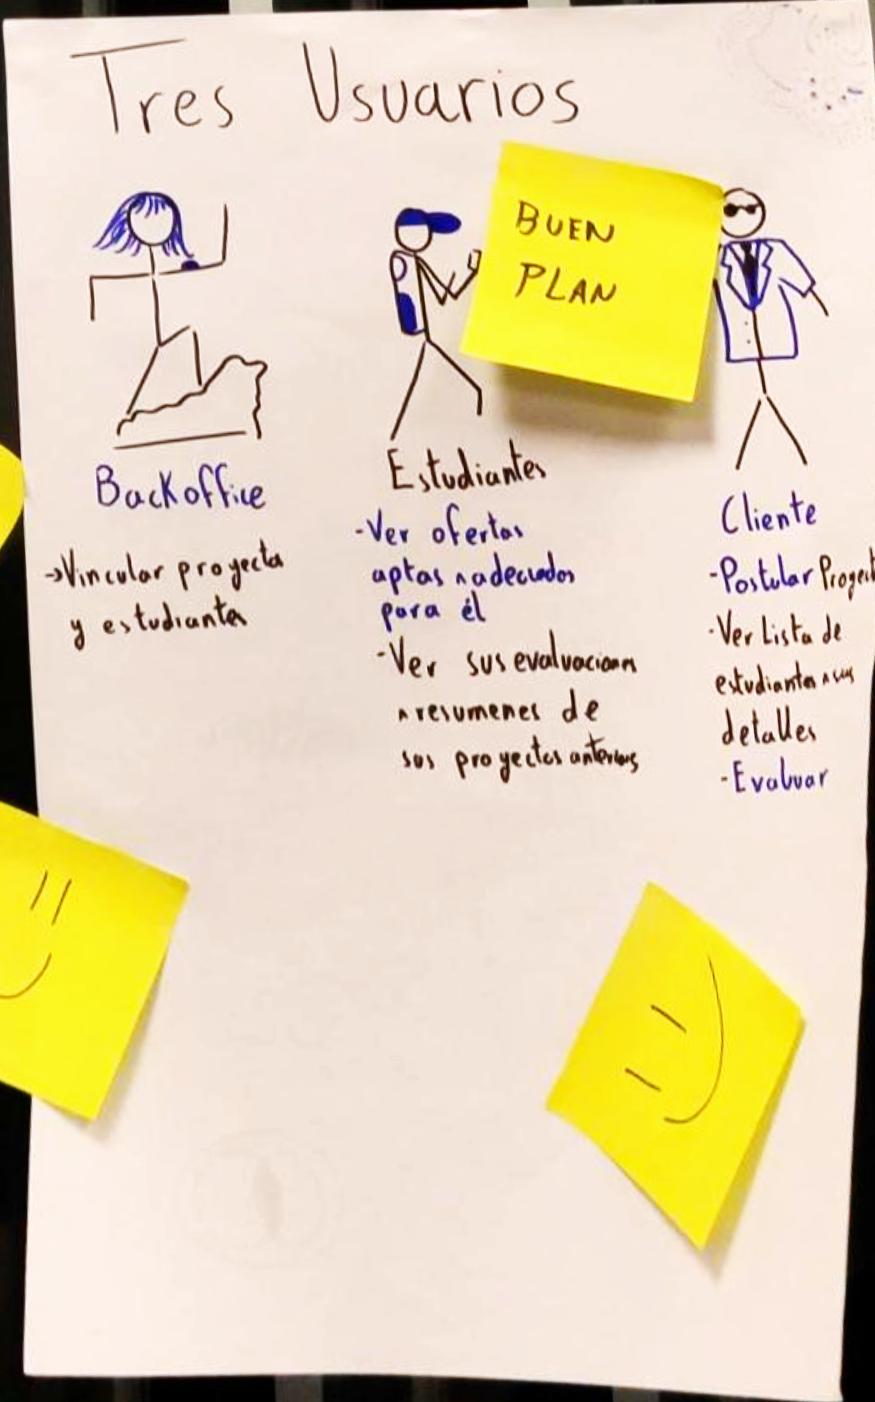 Tres Usuarios
BUEN
PLAN
Backoffice
→Vincular proyectos
y estudiantes
Estudiantes
-Ver ofertas
aptas ∧ adecuados
para él
-Ver sus evaluaciones
∧ resumenes de
sus proyectos anteriores
Cliente
-Postular
-Ver Lista de
estudiantes ∧ sus
detalles
-Evaluar